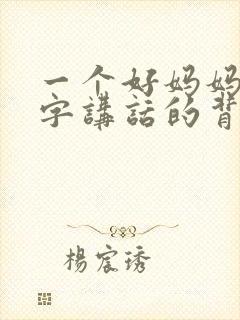 一个好妈妈
字講話的背
楊宸琇